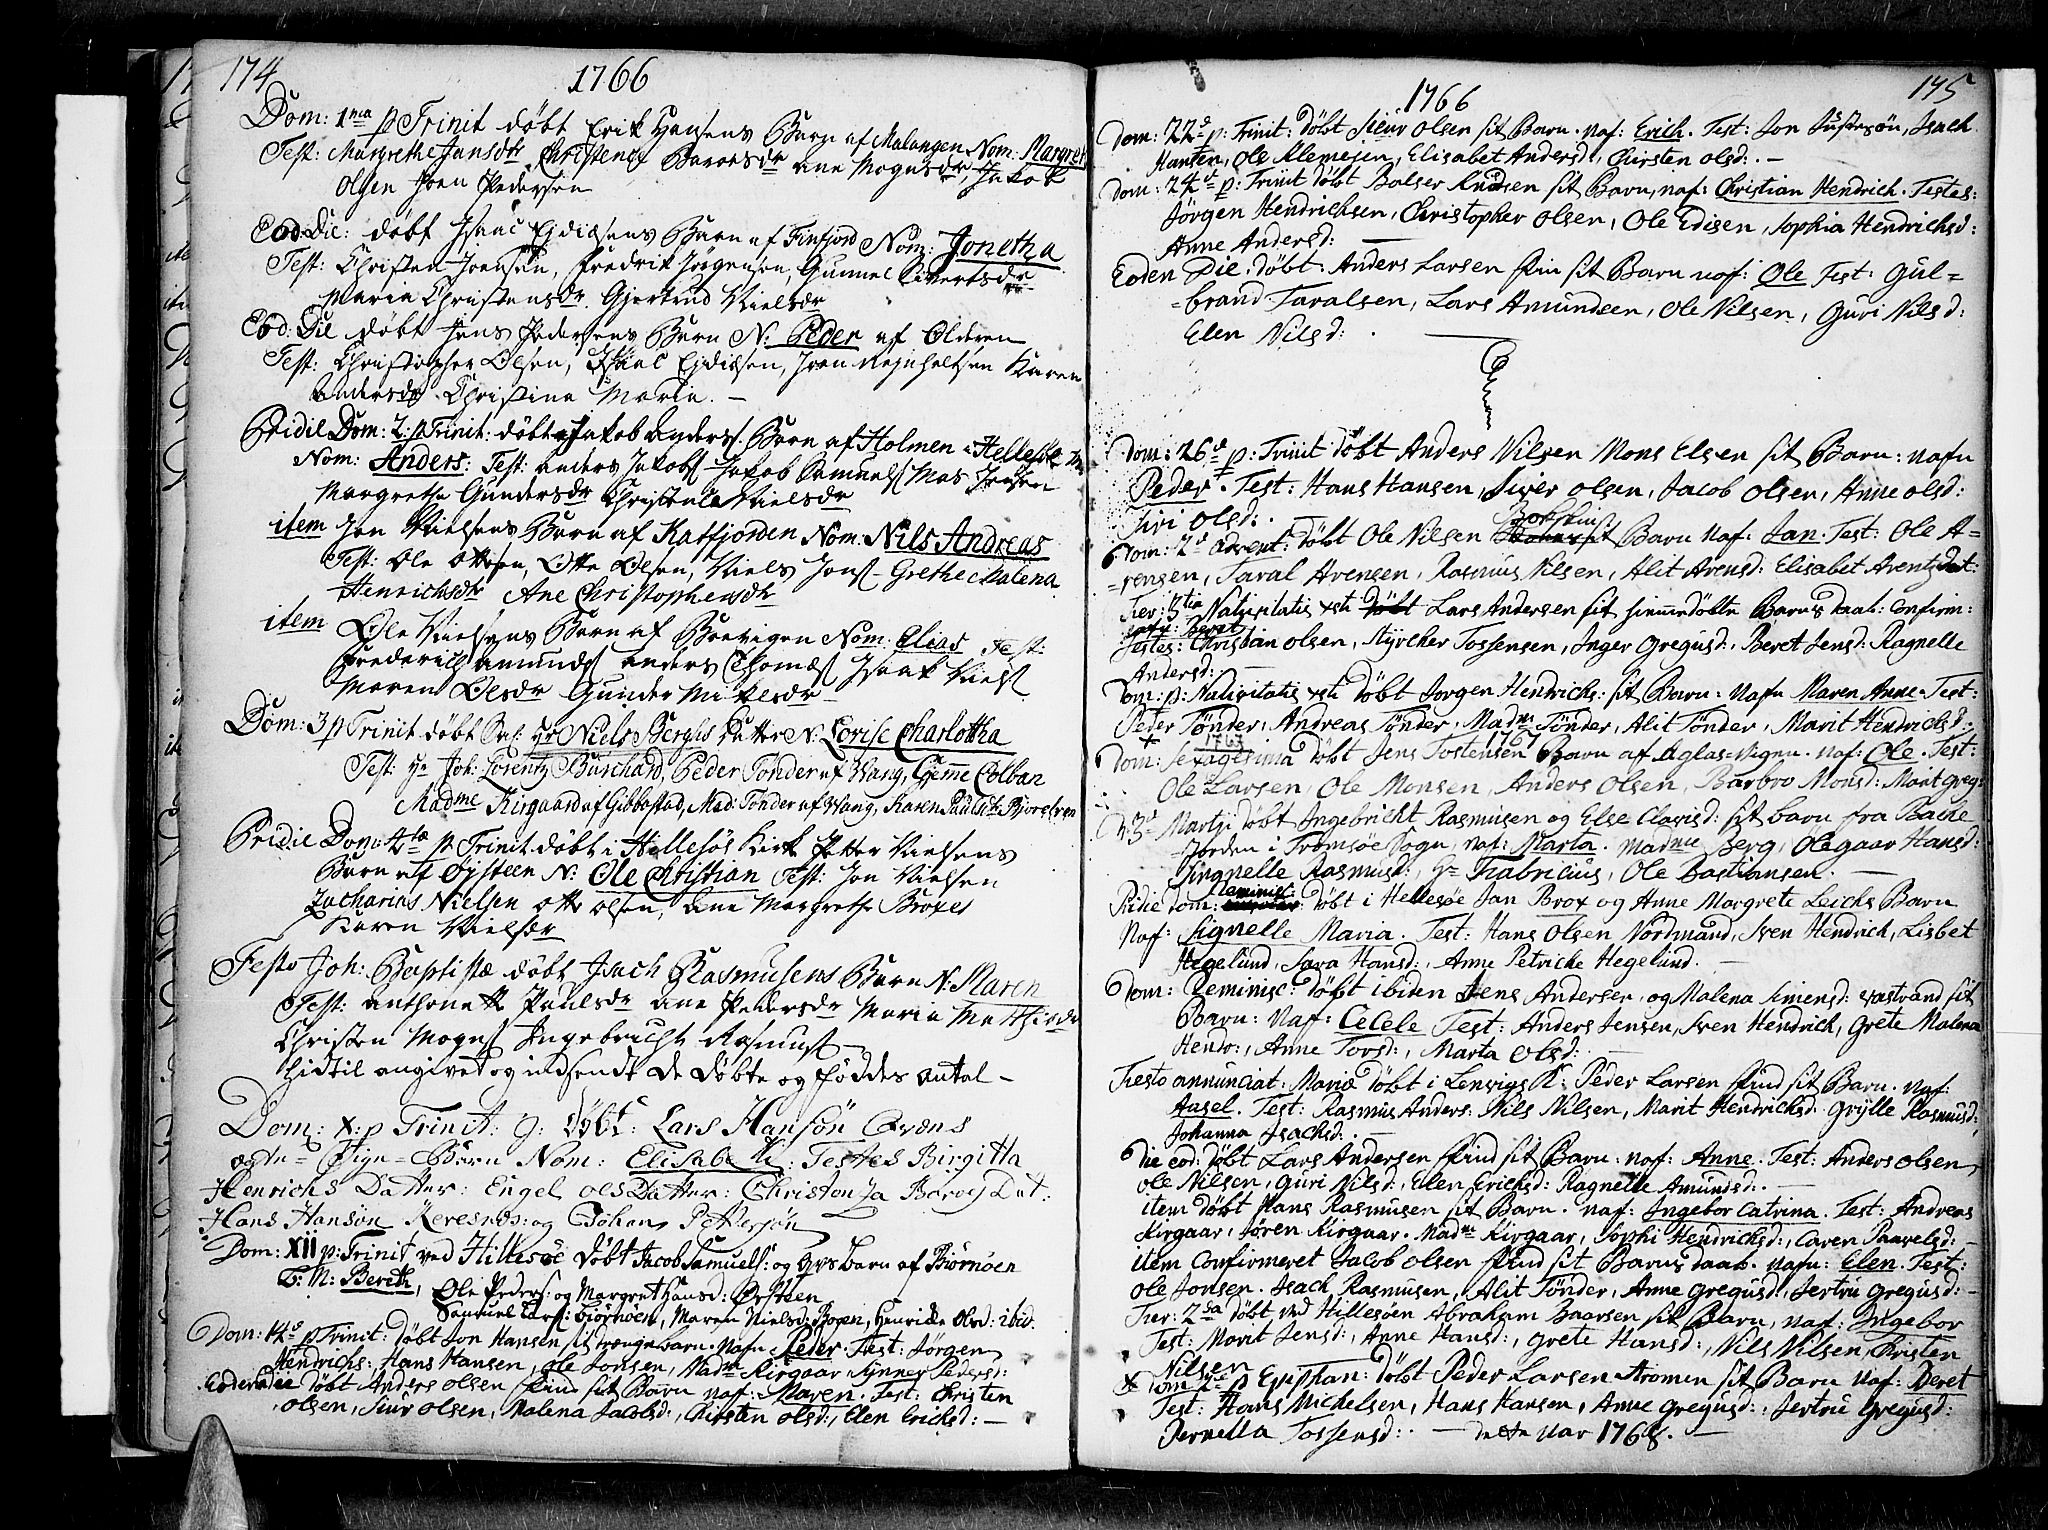 174
1766
Dom: 1ma p Trinit døbt Erik Hansens Barn af Malangen Nom: Margret
Test: Margrethe Jansdr Christence Baroesdr Ane Mognsdr, Jakob
Olsen Joen Pedersen
Eod Die: døbt Isaac Ejdissens Barn af Finfjord Nom: Jonetha
Test: Christen Joensen, Fredrik Jørgensen, Gunnel Sivertsdr
Maria Christensdr Gjertrud Nielsdr
Eod: Die døbt Jens Pedersens Barn N: Peder af Olderen
Test: Christopher Olsen, Isaac Ejdissen, Joen Karen
Andersdr Christina Maria. —
Pridie Dom: 2 p Trinit: døbt Jakob Anders: Barn af Holmen i Hellesøe
Nom: Anders: Test: Anders Jakobs Jakob Samuels Mas Jensen
Margrethe Gundersdr Christence Nielsdr
item Jon Nielsens Barn af Katfjorden Nom: Nils Andreas
Test: Ole Ottesen, Otte Olsen, Niels Jons Grethe Malena
Henrichsdr Ane Christophersdr
item Ole Nielsens Barn af Brevigen Nom: Elias Test:
Frederich Amunds Anders Thomæs Isaak Niels
Maren Olsdr Gunder Mikkelsdr
Dom: 3 p Trinit døbt Hr Niels Berghs Datter N: Lovise Charlotha
Test: Hr Joh: Lorentz Burchard, Peder Tønder af Wang, Colban
Madme Kirgaard af Gibbostad, Mad: Tønder af Wang, Karen
Pridie Dom: 4tæ p Trinit døbt i Hellesøe Kirk Petter Nielsens
Barn af Øysteen N: Ole Christian Test: Jon Nielsen
Zacharias Nielsen Otte Olsen, Ane Margrethe Broxes
Karen Nielsdr
Festo Joh: Baptistæ døbt Isach Rasmusens Barn N: Maren
Test: Anthonette Paulsdr Ane Pedersdr Maria Mathisdr
Christen Mogns Ingebricht Rasmus
Hidtil angivet og indsendt de døbte og føddes Antal —
Dom: X: p Trinit: 9: døbt: Lars Hansøn
Barn Nom: Elisabeth: Testes Birgitta
Henrichs Datter: Engel Ols Datter: Dat:
Hans Hansøn og Johan Pettersøn
Dom: XII p: Trinit ved Hillesøe døbt Jacob Samuels: og Barn af Biørnøen
N: Bereth, Ole Peders: og Margret Hansd: Øysteen
Samuel Lars: Biørnøen, Maren Nielsd: Bogen, Henricke Olsd: ibid.
Dom: 14de p Trinit: døbt Jon Hansen sit Barn. Nafn Peder Test: Jørgen
Hendrichs:, Hans Hansen, Ole Jonsen, Madme Kirgaar Synnev Pedersd:
Eodem die døbt Anders Olsen Find sit Barn naf: Maren. Test: Christen
Olsen, Siur Olsen, Malena Jacobsd:, Kirsten Olsd:, Elen Erichsd: —
1766
175
Dom: 22de p: Trinit: døbt Siur Olsen sit Barn. naf: Erich. Test: Jon Justesøn, Isach
Hansen, Ole Klemejen, Elisabet Andersd:, Chirsten Olsd:. —
Dom: 24de p: Trinit døbt Balser Knudsen sit Barn, naf: Christian Hendrich. Testes:
Jørgen Hendrichsen, Christopher Olsen, Ole Edisen, Sophia Hendrichsd:
Anne Andersd:
Eoden Die. døbt. Anders Larsen Fin sit Barn naf: Ole Test: Gul=
=brand Taralsen, Lars Amundsen, Ole Nilsen, Guri Nilsd:
Elen Nilsd: .
Dom: 26de p: Trinit døbt Anders Nilsen Mons Elsen sit Barn: nafn
Peder. Test: Hans Hansen, Siver Olsen, Jacob Olsen, Anne Olsd:
Siri Olsd: .
Dom: 2de Advent: døbt Ole Nilsen sit Barn Naf: Jan. Test: Ole A=
=rensen, Taral Arensen, Rasmus Nilsen, Alit Arensd: Elisabet Arentzdat:
Fer: 3tia Nativitatis xsti Lars Andersen sit hiemmedøbte Barns daab: Confirm:
Beret
Testes: Christian Olsen, Styrcher Tossensen, Inger Gregusd:, Beret Jensd: Ragnelle
Andersd: .
Dom: p: Nativitatis xsti døbt Jorgen Hendrichs: sit Barn: Nafn Maren Anne. Test:
Peder Tønder, Andreas Tønder, Madme Tønder, Alit Tønder, Marit Hendrichsd:.
1767
Dom: Sexagesima døbt Jens Tostensens Barn af Aglas=vigen. naf: Ole. Test:
Ole Larsen, Ole Monsen, Anders Olsen, Barbro Monsd: Marit Greg:
D: 3de Martii døbt Ingebricht Rasmusen og Else Clavisd: sit barn fra Balke
=Jorden i Tromsøe Sogn, naf: Marta. Madme Berg, Olegaar Hansd:
Ringnelle Rasmusd:, Hr Frabricius, Ole Bastiansen. —
Pridie Dom: Reminisc: døbt i Hellesøe Jan Brox og Anne Margrete Leichs Barn
Naf: Signelle Maria. Test: Hans Olsen Nordmand, Sven Hendrich, Lisbet
Hegelund, Sara Hansd:, Anne Petricke Hegelund. —
Dom: Reminisc: døbt ibiden Jens Andersen, og Malena Simensd: vastrand sit
Barn: Naf: Cecele Test: Anders Jensen, Sven Hendrich, Grete Malena
Hendr:, Anne Torsd:, Marta Olsd: . —
Festo annunciat: Mariæ døbt i Lenvigs K: Peder Larsen Find sit Barn. Naf:
Aasel. Test: Rasmus Anders. Nils Nilsen, Marit Hendrichsd: GryLle Rasmusd:,
Johanna Isachsd: .
Die eod: døbt Lars Andersen Find sit Barn: naf: Anne. Test: Anders Olsen,
Ole Nilsen, Guri Nilsd:, Elen Erichsd: Ragnelle Amundsd: . —
item døbt Hans Rasmusen sit Barn. naf: Ingebor Catrina. Test: Andreas
Kirgaar, Søren Kirgaar. Madme Kirgaar, Sophi Hendrichsd:, Caren Paavelsd: —
item Confirmeret Jacob Olsen Find sit Barns daab. nafn: Elen. Test:
Ole Jonsen. Isach Rasmusen, Alit Tønder, Anne Gregusd:, Jertru Gregusd: —
Fer: 2da døbt ved Hillesøen Abraham Baarsen sit Barn, naf: Ingebor
Test: Marit Jensd:, Anne Hansd:, Grete Hansd:, Nils Nilsen, Christen
Nilsen
x Dom 2de p Epiphan: døbt Peder Larsen Stromen sit Barn Naf: Beret
Test: Hans Michelsen, Hans Hansen, Anne Gregusd:, Jertru Gregusd:
Pernella Tossensd: . — dette var 1768. —